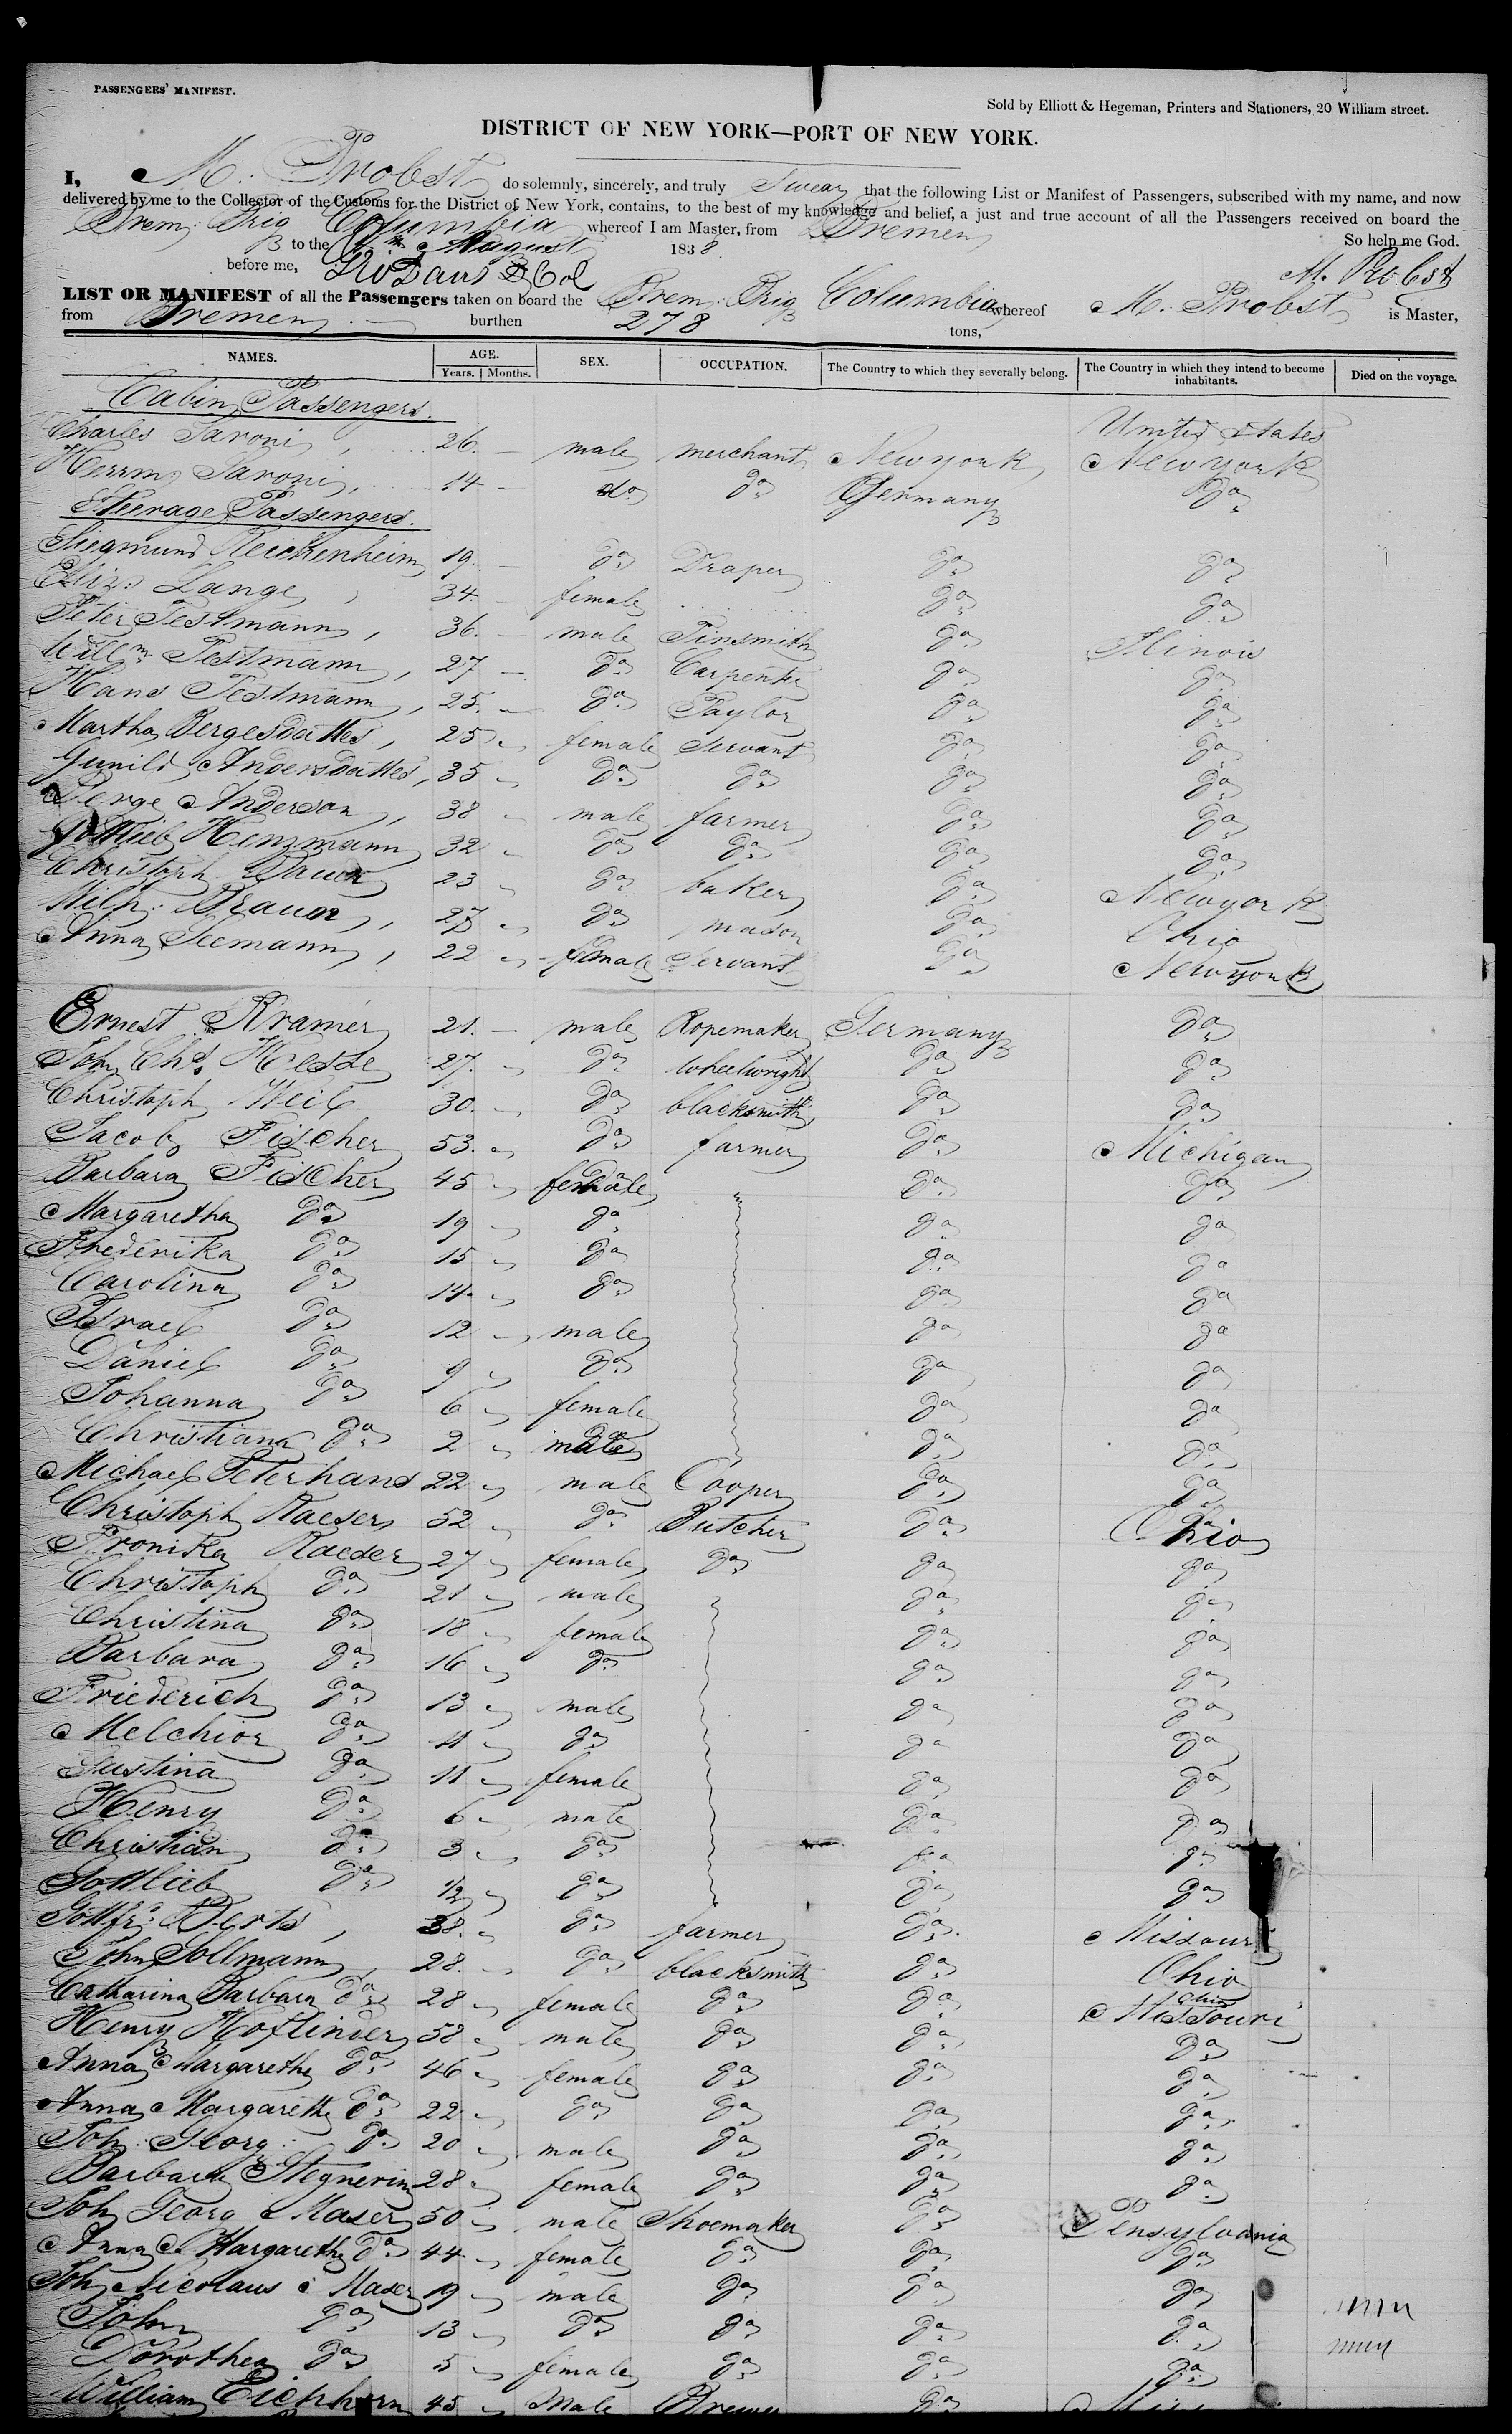 PASSENGERS' MANIFEST.
Sold by Elliott & Hegeman, Printers and Stationers, 20 William street.
DISTRICT OF NEW YORK—PORT OF NEW YORK.
I, M. Probst do solemnly, sincerely, and truly Swear that the following List or Manifest of Passengers, subscribed with my name, and now
delivered by me to the Collector of the Customs for the District of New York, contains, to the best of my knowledge and belief, a just and true account of all the Passengers received on board the
Brem: Brig Columbia whereof I am Master, from Bremen
to the August 1838. So help me God.
before me, M. Probst
LIST OR MANIFEST of all the Passengers taken on board the Brem: Brig Columbia whereof M. Probst is Master,
from Bremen burthen 278 tons,
NAMES. AGE. Years. Months. SEX. OCCUPATION. The Country to which they severally belong. The Country in which they intend to become inhabitants. Died on the voyage.
Cabin Passengers.
United States
Charles Saroni, 26. – male merchant New york New york
Herrm: Saroni, 14 – do do Germany do
Steerage Passengers.
Siegmund Reichenheim 19. – do Draper do do
Eliz: Lange, 34. – female do do
Peter Testmann, 36. – male Tinsmith do Illinois
Willm Testmann, 27 – do Carpenter do do
Hans Testmann, 25. – do Taylor do do
Martha Bergesdattes, 25 " female Servant do do
Gunild Andersdattes, 35 " do do do do
Berge Anderson, 38 " male farmer do do
Gottlieb Henzmann 32 " do do do do
Christoph 23 " do baker do New york
Wilh: Braun, 27 " do mason do Ohio
Anna Seemann, 22 " female Servant do New york
Ernest Kramer 21. – male Ropemaker Germany do
John Chs. Hesse 27. " do wheelwright do do
Christoph Weil 30. " do blacksmith do do
Jacob Fischer 53. " do farmer do Michigan
Barbara Fischer 45 " female do do
Margaretha do 19 " do do do
Frederika do 15 " do do do
Carolina do 14. " do do do
Israel do 12 " male do do
Daniel do 9 " do do do
Johanna do 6 " female do do
Christiana do 2 " do do do
Michael Peterhans 22 " male Cooper do do
Christoph Raeser 52 " do Butcher do Ohio
Fronika Raeser 27 " female do do do
Christoph do 21 " male do do
Christina do 18 " female do do
Barbara do 16 " do do do
Friederich do 13 " male do do
Melchior do 11 " do do do
Justina do 11 " female do do
Henry do 6 " male do do
Christian do 3 " do do do
Gottlieb do 1/2 " do do do
Gottfr: Berts, 38. " do farmer do Missouri
John Sollmann, 28. " do blacksmith do Ohio
Catharina Barbara do 28 " female do do Ohio
Henry Hoflinder 58 " male do do Missouri do
Anna Margaretha do 46 " female do do do
Anna Margareth do 22 " do do do do
Joh: Georg: do 20 " male do do do
Barbara Stegnerin 28 " female do do do
Joh Georg Maser 50 " male Shoemaker do Pensylvania
Anna Margaretha do 44 " female do do do
Joh Nicolaus Maser 19 " male do do do
John do 13 " do do do do
Dorothea do 5 " female do do do
William Eichhorn 45 " Male Brewer do